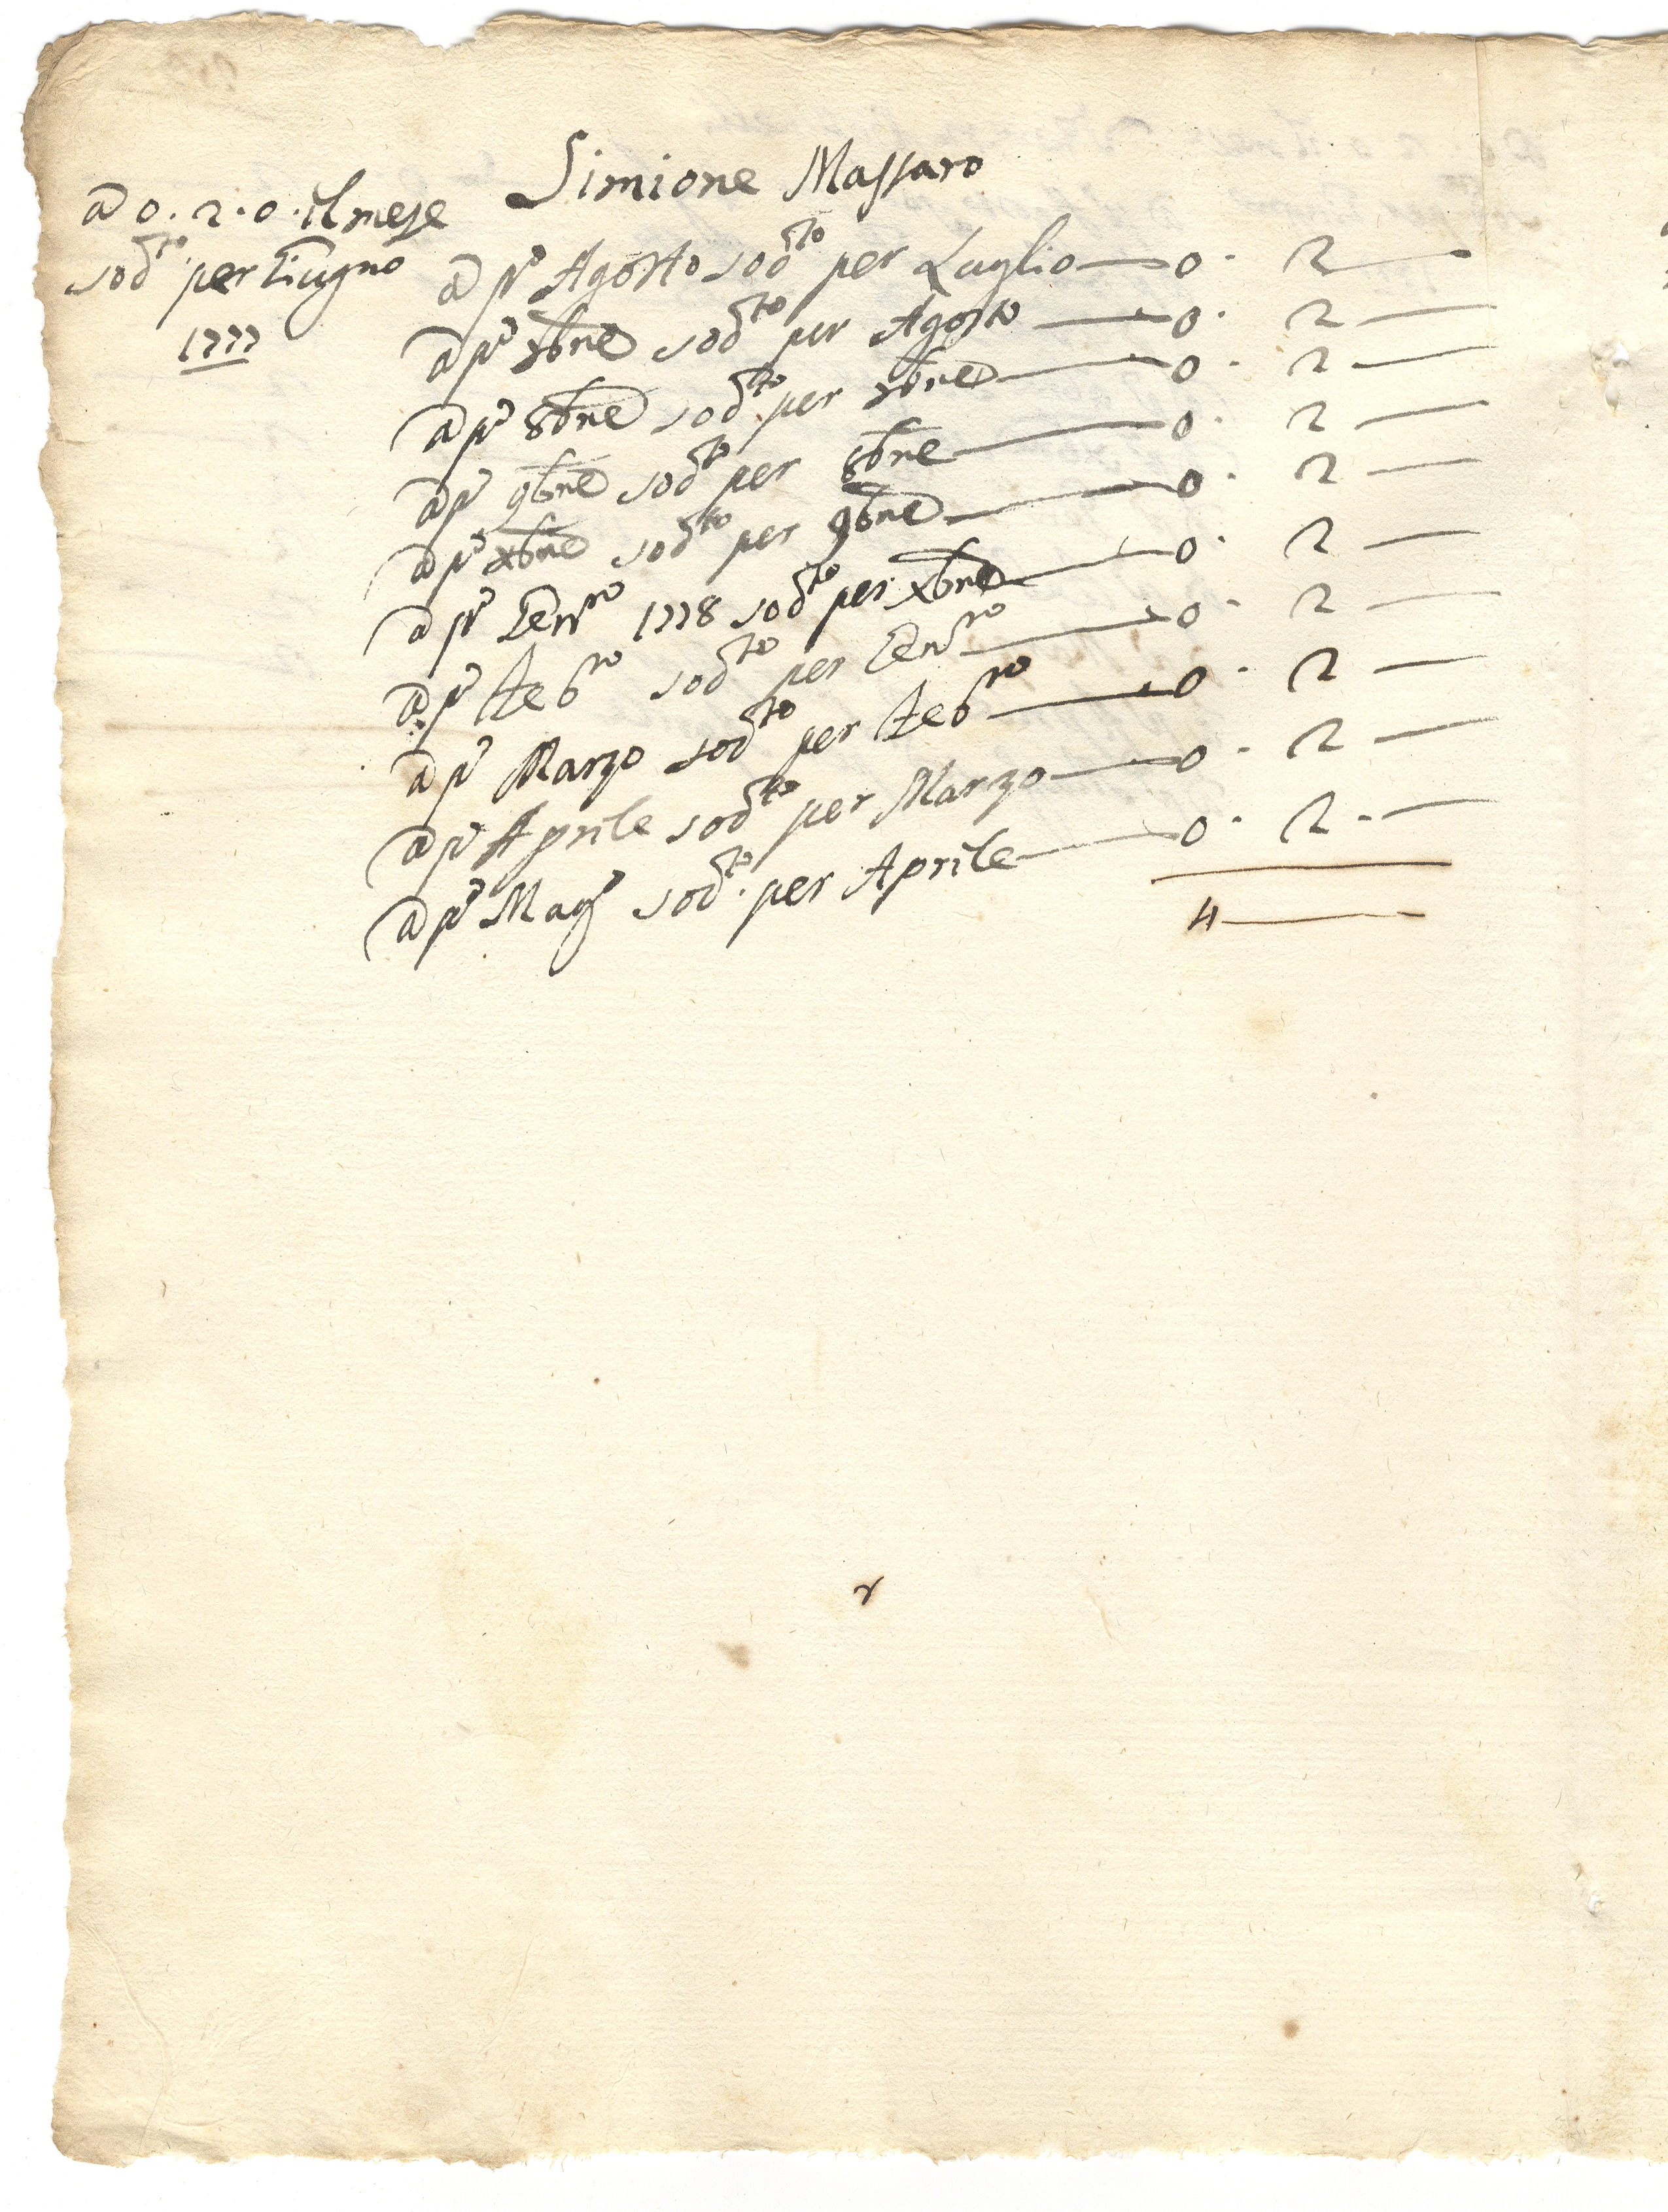 Simione Massaro
a 0.2.0. il mese
sodto per Giugno
1777
a po Agosto sodto per Luglio — 0. 2 —
a po 7bre sodto per Agosto — 0. 2 —
a po 8bre sodto per 7bre — 0. 2 —
a po 9bre sodto per 8bre — 0. 2 —
a po xbre sodto per 9bre — 0. 2 —
a po Genro 1778 sodto per xbre — 0. 2 —
a po Febro sodto per Genro — 0. 2 —
a po Marzo sodto per Febro — 0. 2 —
a po Aprile sodto per Marzo — 0. 2 —
a po Mago sodto per Aprile — 0. 2. —
4 —